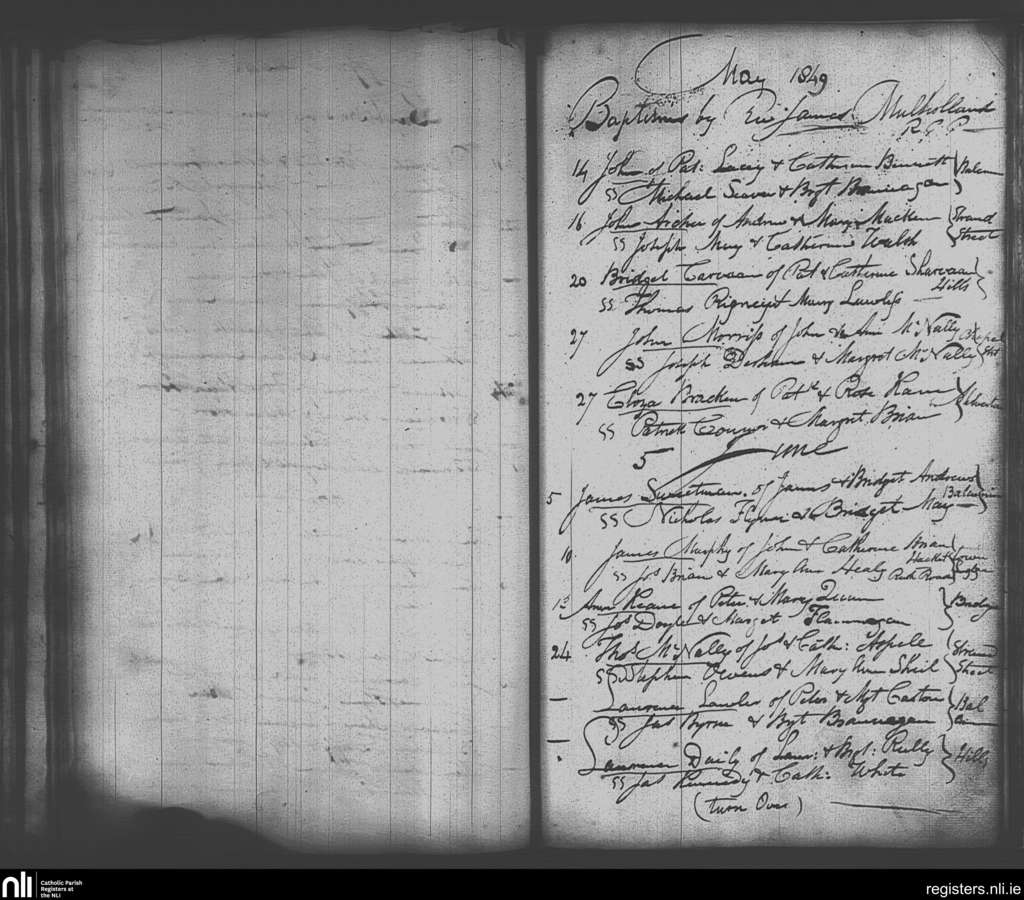 May 1849
Baptisms by Rev James Mulholland
R.C.C.
14 John of Pat: Lacey & Catherine Bennett
SS Michael Seaver & Bgt Brannagan
16 John Archer of Andrew & Mary Macken Strand
SS Joseph May & Catherine Walsh Street
20 Bridget Carvaan of Pat & Catherine Sharvaan
Hills
SS Thomas Mary Lawless
27 John Morriss of John & Ann McNally Chapel
SS Joseph & Margrot McNally Strt
27 Eliza Bracken of Patk & Rose
SS Patrick Connor & Margrt Brian
5 June
5 James Sweetman of James & Bridget Andrews
SS Nicholas Flynn & Bridget May
10 James Murphy of John & Catherine Brian
Hacket town
SS Jos Brian & Mary Ann Healy Rush Road
13 Ann Keane of Peter & Mary Quinn Bridge
SS Jos Doyle & Marget Flannagan
24 Thos McNally of Jos & Cath: Aspell Strand
SS Stephen Owens & Mary Ann Shiel Street
— Laurence Lawler of Peter & Mgt Caston Bal
SS Jas Byrne & Bgt Brannagan
— Laurence Daily of Laur: & Bgt: Reilly Hills
SS Jas Kennedy & Cath: White
(turn Over)
nli Catholic Parish
Registers at
the NLI
registers.nli.ie